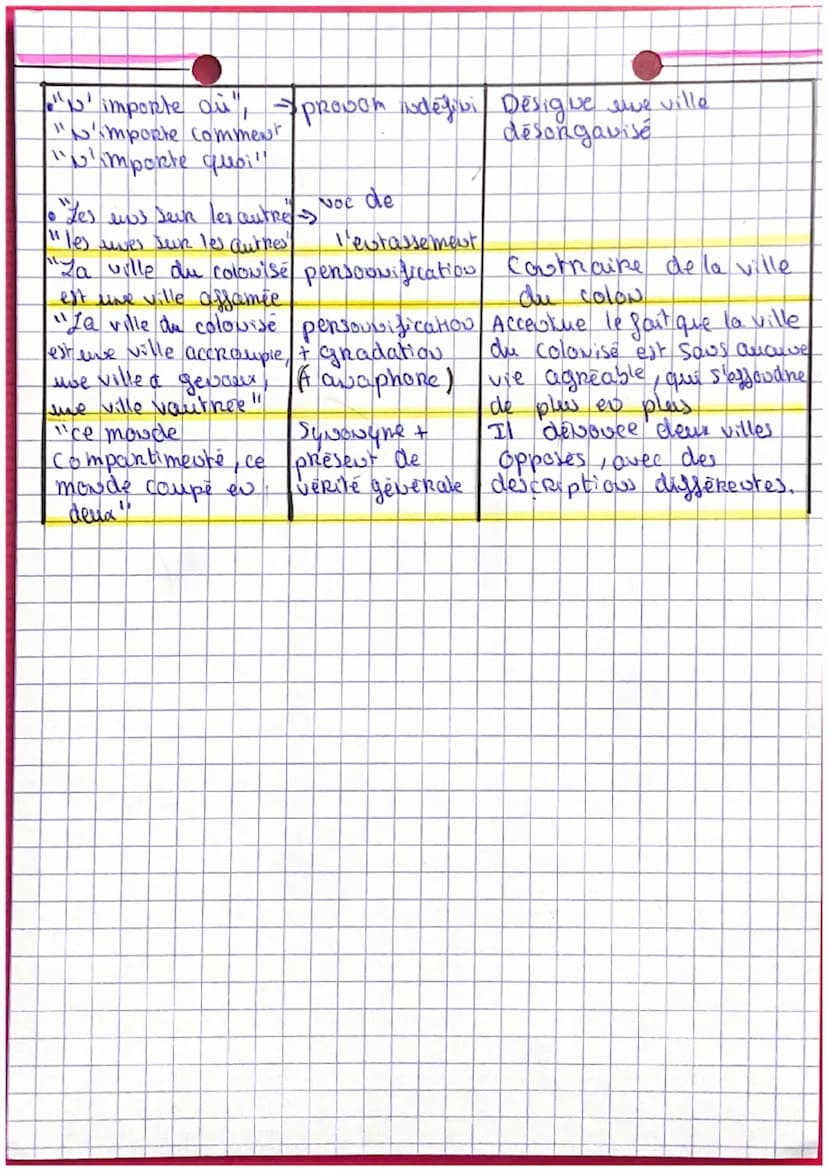 "N'importe où", → pronom indéfini
"N'importe comment"
"N'importe quoi"
Désigne une ville
désorganisé
"Les uns sur les autre" → voc de
"les unes sur les autres" l'entassement
"La ville du colonisé
est une ville affamée
personnification
Contraire de la ville
du colon
"La ville du colonisé
est une ville accroupie,
une ville à genoux,
une ville vautrée"
personnification
+ gradation
(+ anaphore)
Accentue le fait que la ville
du colonisé est sans aucune
vie agréable, qui s'effondre
de plus en plus
"ce monde
compartimenté, ce
monde coupé en
deux"
Synonyne +
présent de
vérité générale
Il dénonce deux villes
opposes, avec des
descriptions différentes.